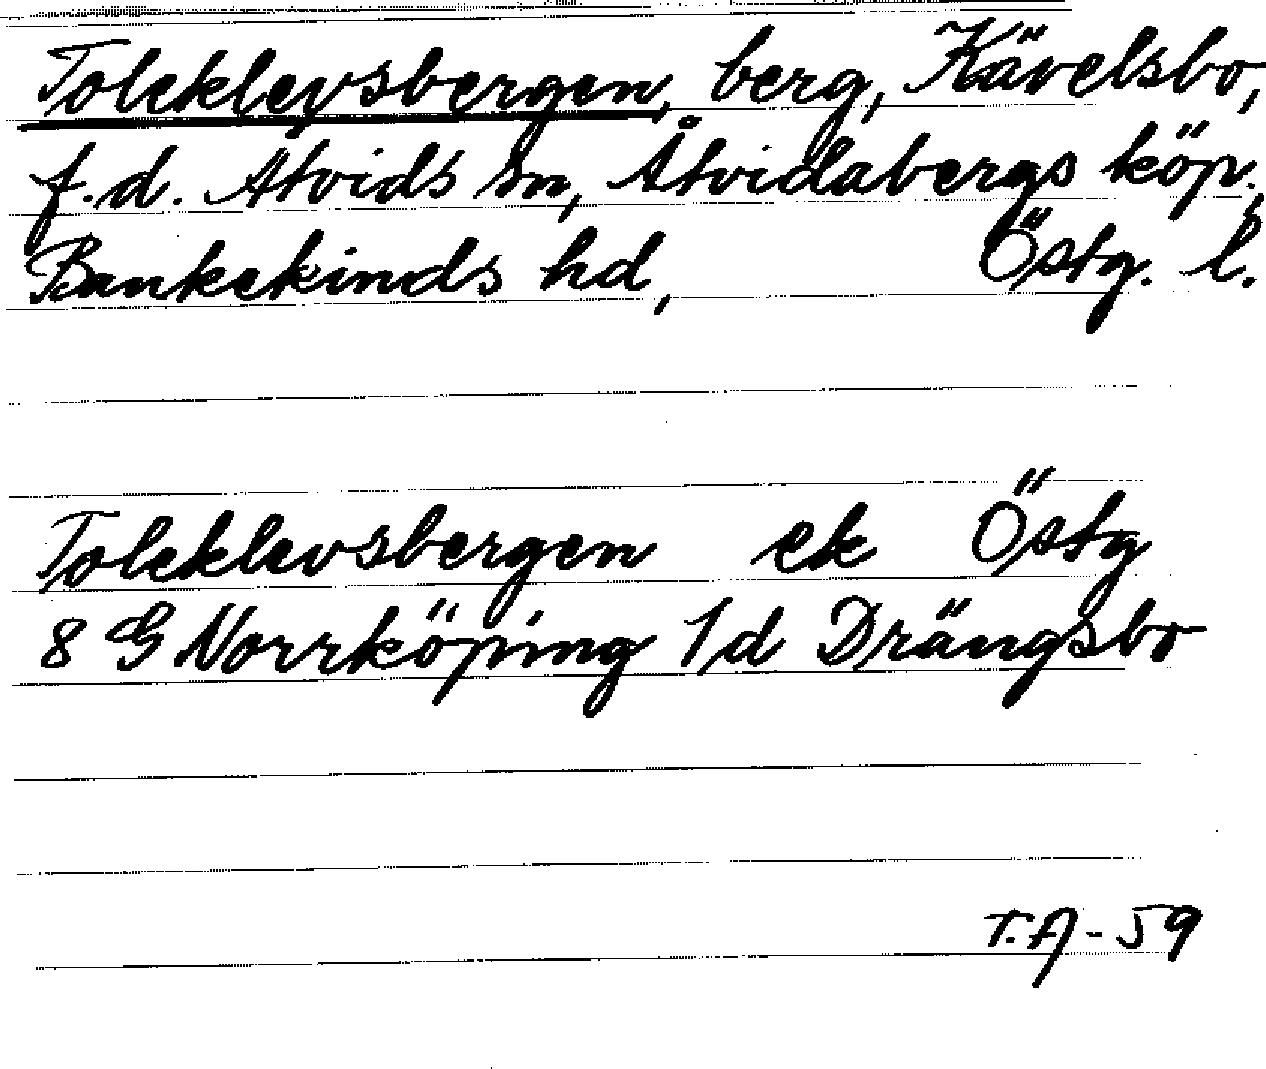 Toleklevsbergen, berg, Kävelsbo,
f.d. Åtvids sn, Åtvidabergs köp.,
Bankekinds hd, Östg. l.
Toleklevsbergen ek Östg
8 G Norrköping 1d Drängsbo
T.A-59